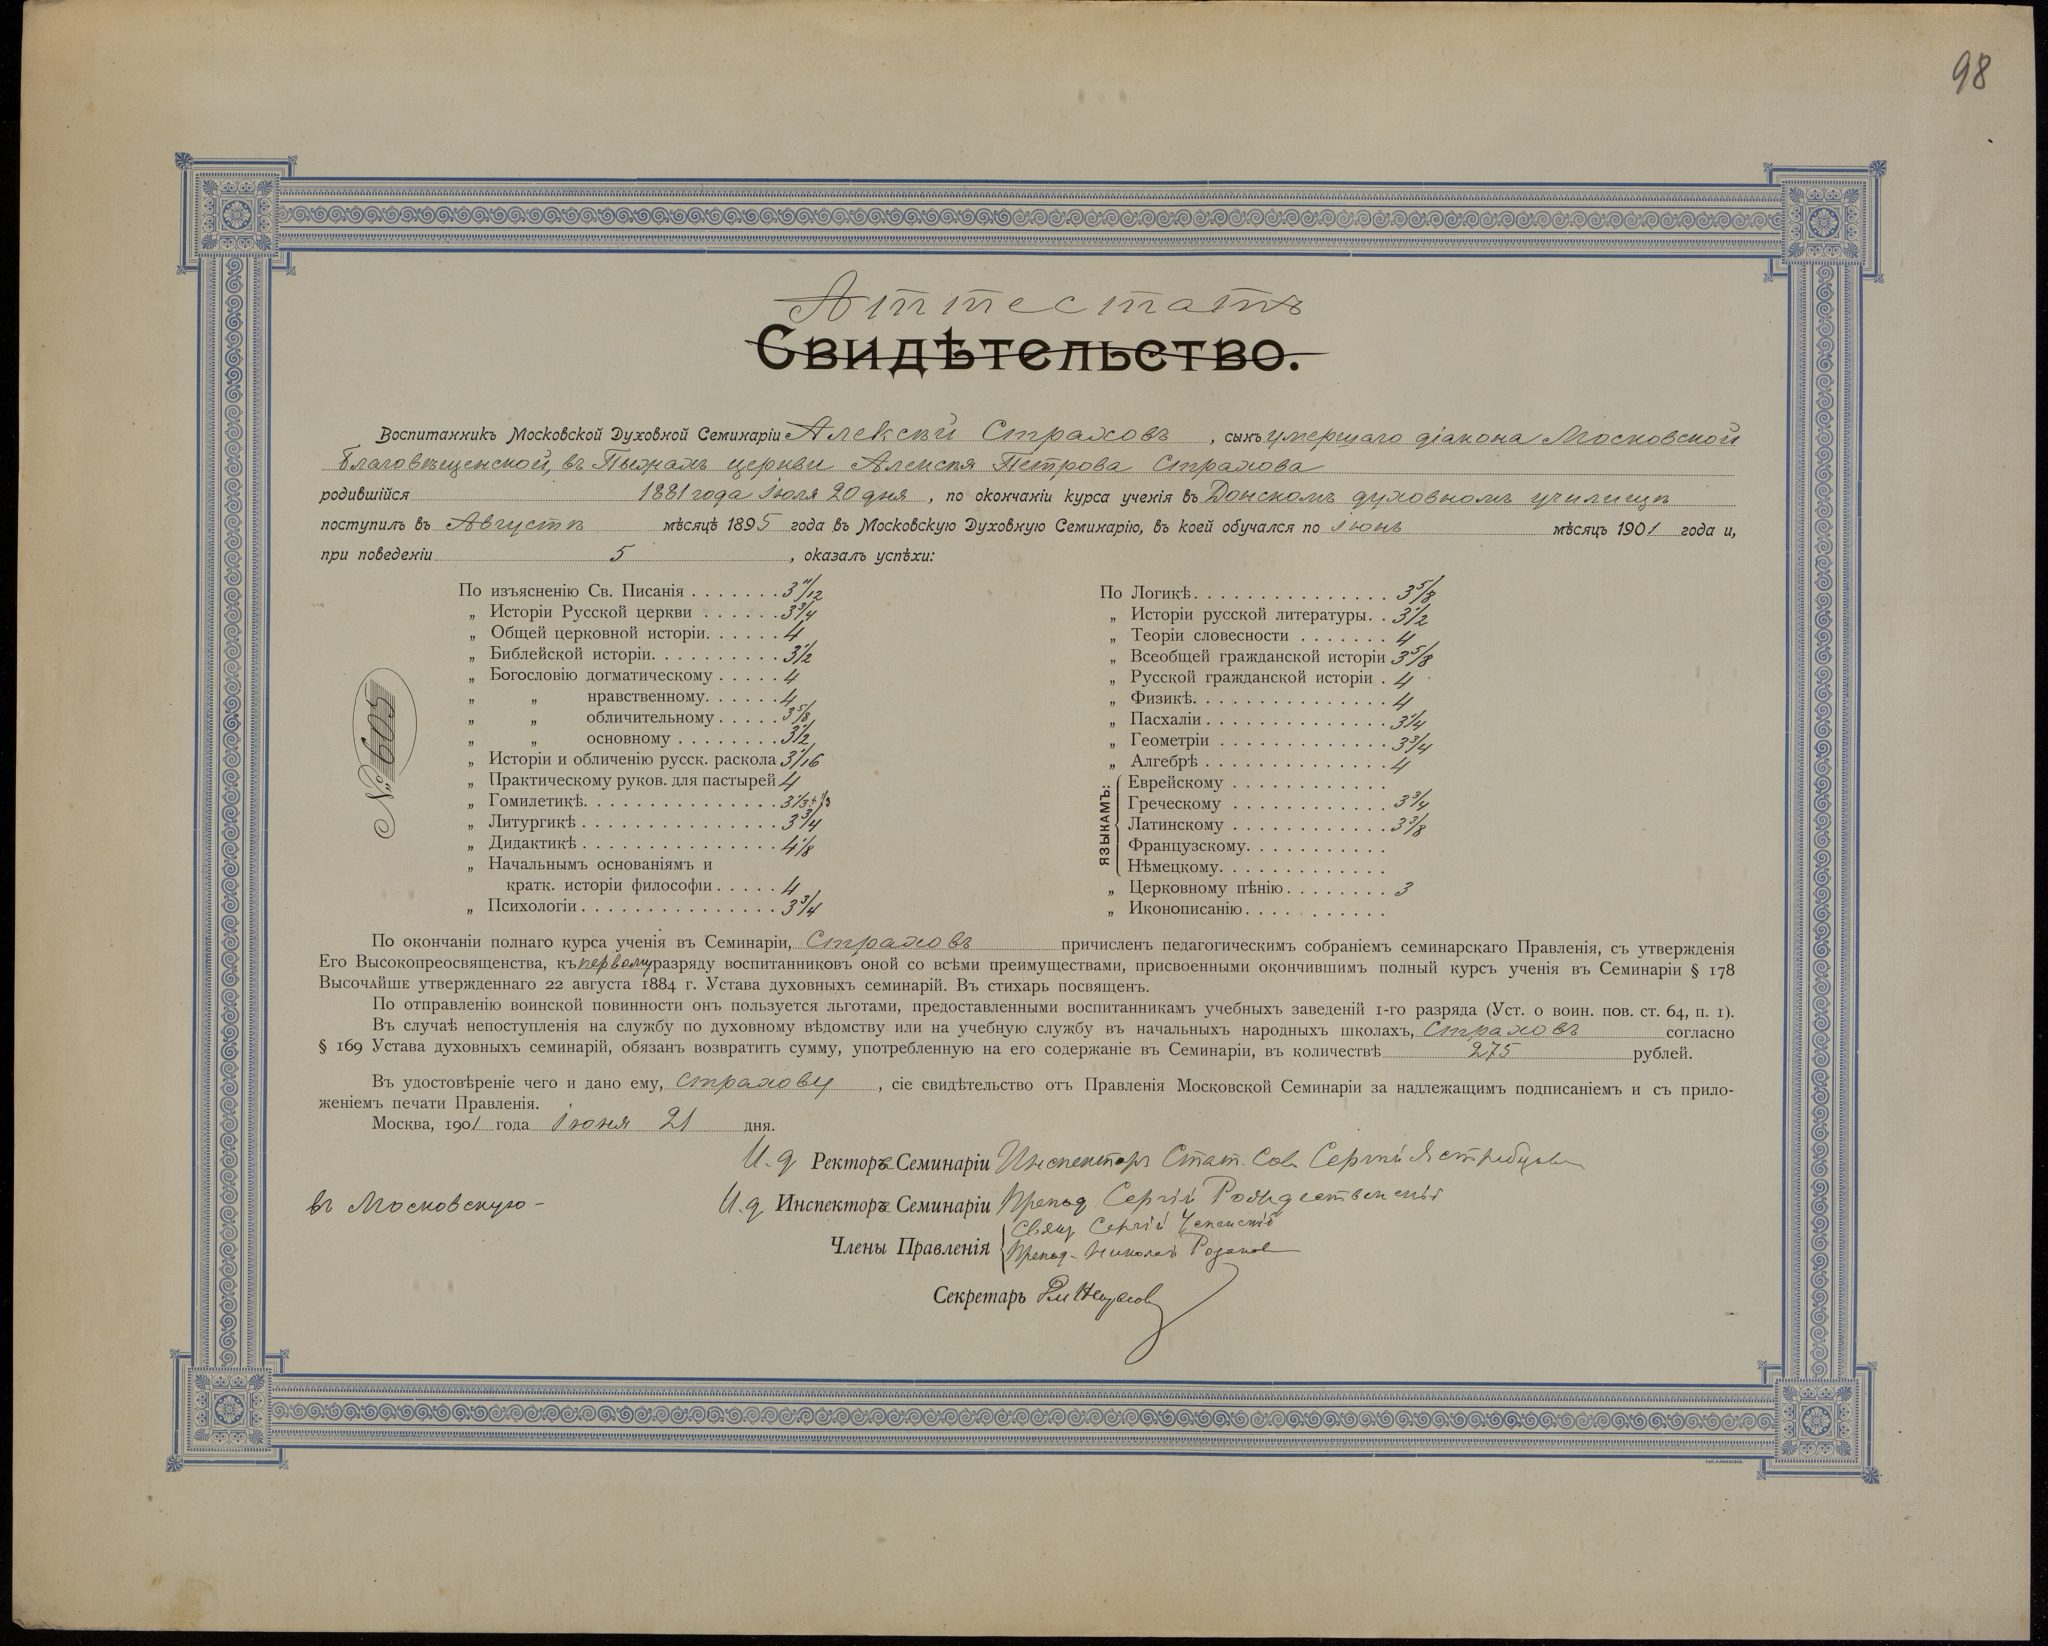 98
Аттестатъ
Свидѣтельство.
Воспитанникъ Московской Духовной Семинаріи Алексѣй Страховъ, сынъ умершаго діакона Московской
Благовѣщенской, въ Пыжахъ церкви Алексѣя Петрова Страхова
родившійся 1881 года іюля 20 дня, по окончаніи курса ученія въ Донскомъ духовномъ училищѣ
поступилъ въ Августѣ мѣсяцѣ 1895 года въ Московскую Духовную Семинарію, въ коей обучался по іюнь мѣсяцъ 1901 года и,
при поведеніи 5, оказалъ успѣхи:
№ 605
По изъясненію Св. Писанія . . . . . . . 3 11/12
„ Исторіи Русской церкви . . . . . . 3 3/4
„ Общей церковной исторіи. . . . . . 4
„ Библейской исторіи. . . . . . . . . . 3 1/2
„ Богословію догматическому . . . . . 4
„ „ нравственному. . . . . . 4
„ „ обличительному . . . . . 3 5/8
„ „ основному . . . . . . . . 3 1/2
„ Исторіи и обличенію русск. раскола 3 1/16
„ Практическому руков. для пастырей 4
„ Гомилетикѣ. . . . . . . . . . . . . . . 3 1/3 + 1/3
„ Литургикѣ . . . . . . . . . . . . . . . 3 3/4
„ Дидактикѣ . . . . . . . . . . . . . . . 4 1/8
„ Начальнымъ основаніямъ и
кратк. исторіи философіи . . . . . 4
„ Психологіи . . . . . . . . . . . . . . . 3 3/4
По Логикѣ. . . . . . . . . . . . . . . . 3 5/8
„ Исторіи русской литературы. . 3 1/2
„ Теоріи словесности . . . . . . . 4
„ Всеобщей гражданской исторіи 3 5/8
„ Русской гражданской исторіи . 4
„ Физикѣ. . . . . . . . . . . . . . . . 4
„ Пасхаліи . . . . . . . . . . . . . . 3 1/4
„ Геометріи . . . . . . . . . . . . . 3 3/4
„ Алгебрѣ . . . . . . . . . . . . . . 4
ЯЗЫКАМЪ:
Еврейскому . . . . . . . . . . . .
Греческому . . . . . . . . . . . . 3 3/4
Латинскому . . . . . . . . . . . . 3 3/8
Французскому. . . . . . . . . . .
Нѣмецкому. . . . . . . . . . . . .
„ Церковному пѣнію . . . . . . . . 3
„ Иконописанію. . . . . . . . . . .
По окончаніи полнаго курса ученія въ Семинаріи, Страховъ причисленъ педагогическимъ собраніемъ семинарскаго Правленія, съ утвержденія
Его Высокопреосвященства, къ первому разряду воспитанниковъ оной со всѣми преимуществами, присвоенными окончившимъ полный курсъ ученія въ Семинаріи § 178
Высочайше утвержденнаго 22 августа 1884 г. Устава духовныхъ семинарій. Въ стихарь посвященъ.
По отправленію воинской повинности онъ пользуется льготами, предоставленными воспитанникамъ учебныхъ заведеній 1-го разряда (Уст. о воин. пов. ст. 64, п. 1).
Въ случаѣ непоступленія на службу по духовному вѣдомству или на учебную службу въ начальныхъ народныхъ школахъ, Страховъ согласно
§ 169 Устава духовныхъ семинарій, обязанъ возвратить сумму, употребленную на его содержаніе въ Семинаріи, въ количествѣ 275 рублей.
Въ удостовѣреніе чего и дано ему, Страхову, сіе свидѣтельство отъ Правленія Московской Семинаріи за надлежащимъ подписаніемъ и съ прило-
женіемъ печати Правленія.
Москва, 1901 года іюня 21 дня.
И. д. Ректора Семинаріи Инспекторъ Стат. Сов. Сергѣй Ястребцовъ
въ Московскую –
И. д. Инспектора Семинаріи Препод. Сергѣй Рождественскій
Члены Правленія Свящ. Сергій Успенскій
Препод. Николай Розановъ
Секретарь